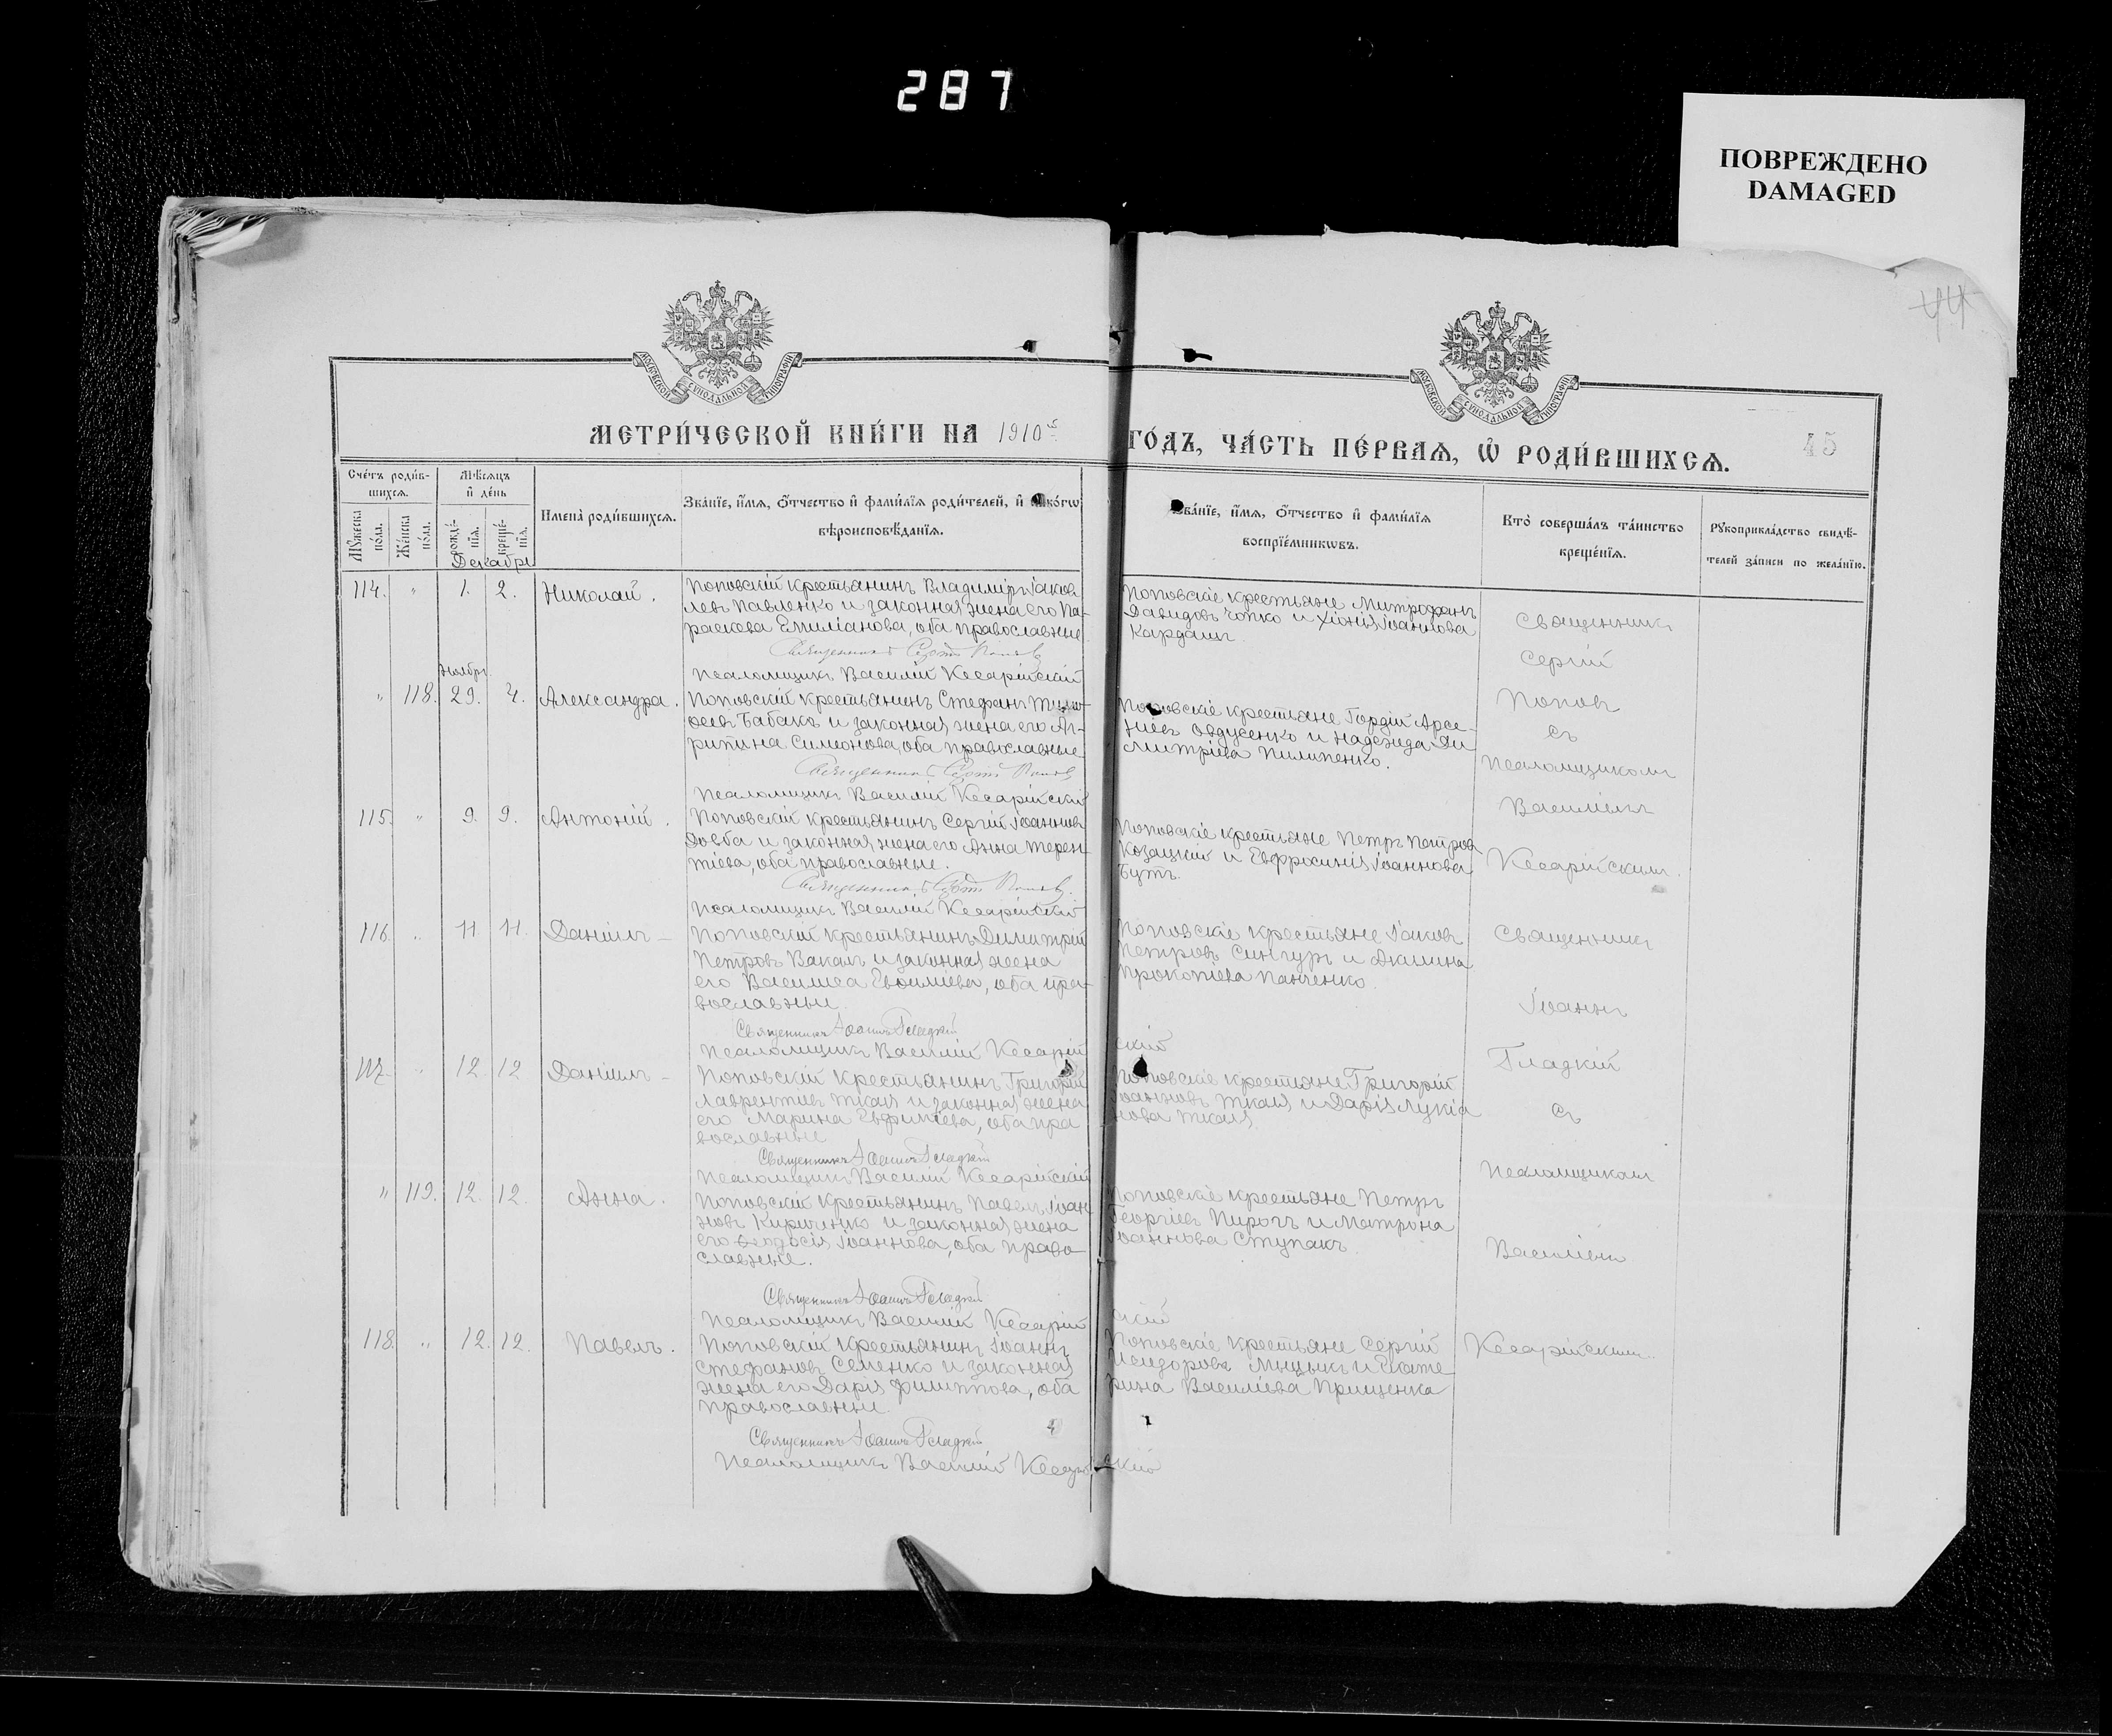 287
ПОВРЕЖДЕНО
DAMAGED
44
МОСКОВСКОЙ СУНОДАЛЬНОЙ ТИПОГРАФІИ
МОСКОВСКОЙ СУНОДАЛЬНОЙ ТИПОГРАФІИ
МЕТРИ́ЧЕСКОЙ КНИ́ГИ НА 1910й ГО́ДЪ, ЧА́СТЬ ПЕ́РВАѦ, Ѡ РОДИ́ВШИХСѦ.
45
Сче́тъ роди́в-
шихсѧ.
Мꙋжеска по́ла.
Же́нска по́ла.
Мѣ́сѧцъ
и де́нь
рожде́-
нїѧ.
креще́-
нїѧ.
Имена̀ роди́вшихсѧ.
Зва́нїе, и́мѧ, ѻ́тчество и фами́лїѧ роди́телей, и како́гѡ
вѣроисповѣ́данїѧ.
Зва́нїе, и́мѧ, ѻ́тчество и фами́лїѧ
воспрїе́мникѡвъ.
Кто̀ соверша́лъ та́инство
креще́нїѧ.
Рꙋкоприкла́дство свидѣ́-
телей за́писи по жела́нїю.
Декабрь
114. " 1. 2. Николай.
Поповскій крестьянинъ Владиміръ Іаков
левъ Павленко и законная жена его Па-
раскева Емиліанова, оба православные.
Священникъ Сергій Поповъ
Псаломщикъ Василій Кесарійскій
Поповскіе крестьяне Митрофанъ
Давидовъ Чопко и Хіонія Іоаннова
Кардашъ.
Священникъ
Сергій
Поповъ
съ
Псаломщикомъ
Василіемъ
Кесарійскимъ.
Ноябрь
" 118. 29. 4. Александра.
Поповскій крестьянинъ Стефанъ Тимо-
феевъ Бабакъ и законная жена его Аг-
рипина Симеонова, оба православные
Священникъ Сергій Поповъ
Псаломщикъ Василій Кесарійскій
Поповскіе крестьяне Гордій Арсе-
ніевъ Овдусенко и Надежда Ди
митріева Пилипенко.
115. " 9. 9. Антоній.
Поповскій крестьянинъ Сергій Іоанновъ
Довба и законная жена его Анна Терен-
тіева, оба православные.
Священникъ Сергій Поповъ.
Псаломщикъ Василій Кесарійскій
Поповскіе крестьяне Петръ Петровъ
Козацкій и Евфросинія Іоаннова
Бутъ.
116. " 11. 11. Даніилъ –
Поповскій крестьянинъ Димитрій
Петровъ Вакалъ и законная жена
его Василиса Евфиміева, оба пра-
вославные.
Священникъ Іоаннъ Гладкій
Псаломщикъ Василій Кесарійскій
Поповскіе крестьяне Іаковъ
Петровъ Сингуръ и Акилина
Прокопіева Панченко.
Священникъ
Іоаннъ
Гладкій
съ
Псаломщикомъ
Василіемъ
Кесарійскимъ.
117. " 12. 12 Даніилъ –
Поповскій крестьянинъ Григорій
Лаврентіевъ Ткачъ и законная жена
его Марина Евфиміева, оба пра
вославные
Священникъ Іоаннъ Гладкій
Псаломщикъ Василій Кесарійскій
Поповскіе крестьяне Григорій
Іоанновъ Ткачъ и Дарія Лукіа
нова Ткачъ.
" 119. 12. 12. Анна.
Поповскій крестьянинъ Павелъ Іоан
новъ Кириченко и законная жена
его Ѳеодосія Іоаннова, оба право-
славные.
Священникъ Іоаннъ Гладкій
Псаломщикъ Василій Кесарійскій
Поповскіе крестьяне Петръ
Георгіевъ Пирогъ и Матрона
Іоаннова Ступакъ.
118. " 12. 12. Павелъ.
Поповскій крестьянинъ Іоаннъ
Стефановъ Семенко и законная
жена его Дарія Филиппова, оба
православные.
Священникъ Іоаннъ Гладкій
Псаломщикъ Василій Кесарійскій
Поповскіе крестьяне Сергій
Исидоровъ Мыцыкъ и Екате-
рина Василіева Прищенка